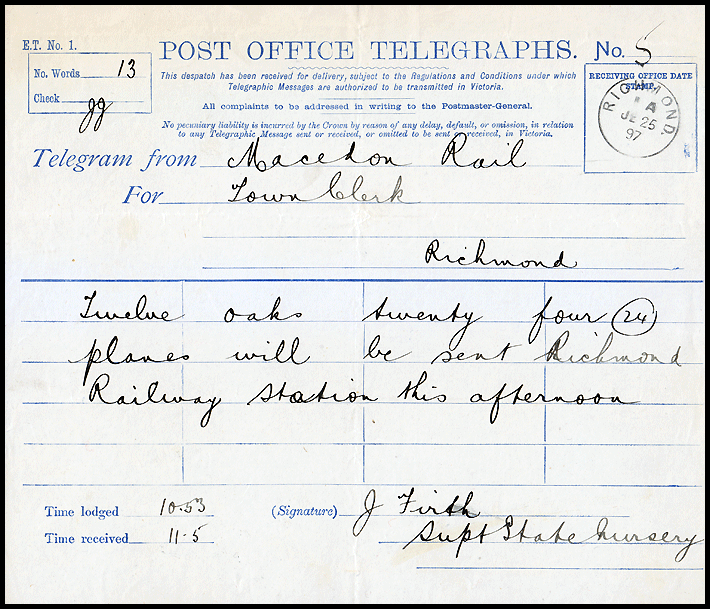 E.T. No. 1.
No. Words 13
Check
POST OFFICE TELEGRAPHS.
No. 5
This despatch has been received for delivery, subject to the Regulations and Conditions under which
Telegraphic Messages are authorized to be transmitted in Victoria.
All complaints to be addressed in writing to the Postmaster-General.
No pecuniary liability is incurred by the Crown by reason of any delay, default, or omission, in relation
to any Telegraphic Message sent or received, or omitted to be sent or received, in Victoria.
RECEIVING OFFICE DATE
STAMP.
RICHMOND.
1 A
JE 25
97
Telegram from Macedon Rail
For Town Clerk
Richmond
Twelve oaks twenty four (24)
planes will be sent Richmond
Railway station this afternoon
Time lodged 10.53
(Signature) J Firth
Time received 11.5
Supt State Nursery